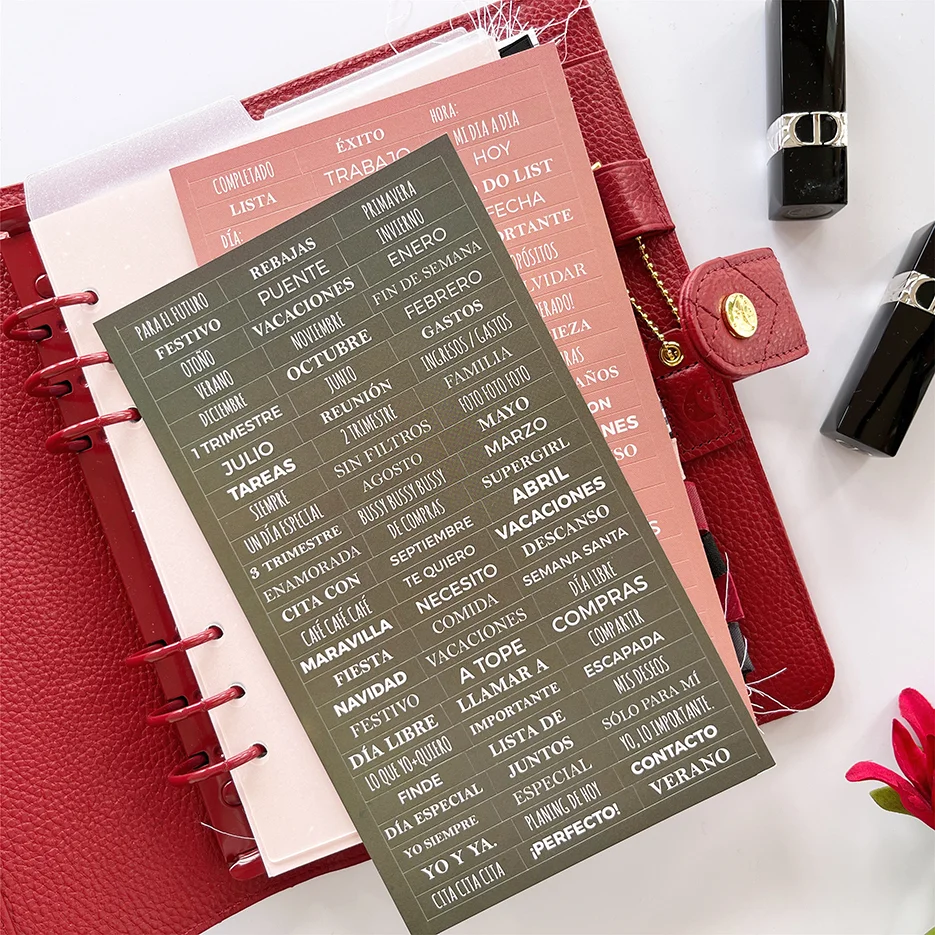 COMPLETADO
LISTA
DÍA:
ÉXITO
TRABAJO
HORA:
MI DIA A DIA
HOY
DO LIST
FECHA
PARA EL FUTURO
FESTIVO
OTOÑO
VERANO
DICIEMBRE
1 TRIMESTRE
JULIO
TAREAS
SIEMPRE
UN DÍA ESPECIAL
3 TRIMESTRE
ENAMORADA
CITA CON
CAFÉ CAFÉ CAFÉ
MARAVILLA
FIESTA
NAVIDAD
FESTIVO
DÍA LIBRE
LO QUE YO+QUIERO
FINDE
DÍA ESPECIAL
YO SIEMPRE
YO Y YA.
CITA CITA CITA
REBAJAS
PUENTE
VACACIONES
NOVIEMBRE
OCTUBRE
JUNIO
REUNIÓN
2 TRIMESTRE
SIN FILTROS
AGOSTO
BUSSY BUSSY
DE COMPRAS
SEPTIEMBRE
TE QUIERO
NECESITO
COMIDA
VACACIONES
A TOPE
LLAMAR A
IMPORTANTE
LISTA DE
JUNTOS
ESPECIAL
PLANING DE HOY
¡PERFECTO!
PRIMAVERA
INVIERNO
ENERO
FIN DE SEMANA
FEBRERO
GASTOS
INGRESOS / GASTOS
FAMILIA
FOTO FOTO FOTO
MAYO
MARZO
SUPERGIRL
ABRIL
VACACIONES
DESCANSO
SEMANA SANTA
DÍA LIBRE
COMPRAS
COMPARTIR
ESCAPADA
MIS DESEOS
SOLO PARA MÍ
YO, LO IMPORTANTE.
CONTACTO
VERANO